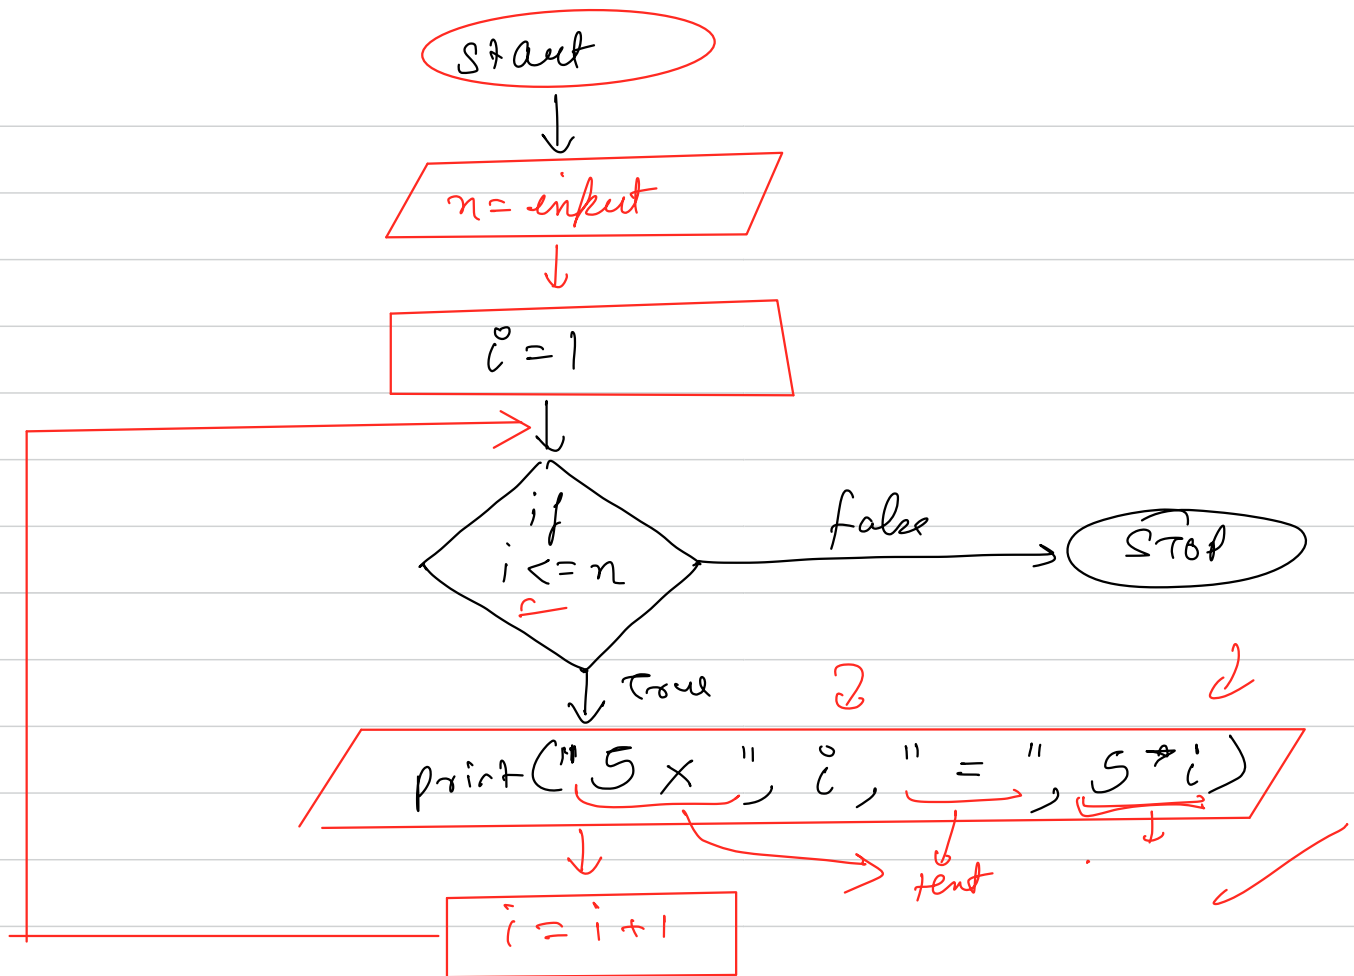 start
n = input
i = 1
if
i <= n
false
STOP
True
print("5 x", i, "=", 5*i)
text
i = i + 1